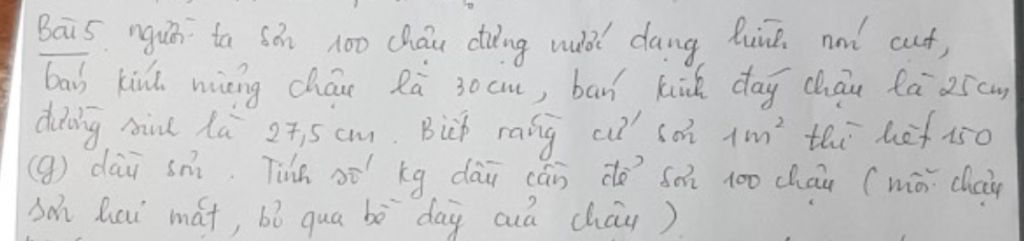 Bài 5 người ta sơn 100 chậu đựng nước dạng hình nón cụt,
bán kính miệng chậu là 30 cm, bán kính đáy chậu là 25 cm
đường sinh là 27,5 cm. Biết rằng cứ sơn 1m² thì hết 150
(g) dầu sơn. Tính số kg dầu cần để sơn 100 chậu (mỗi chậu
sơn hai mặt, bỏ qua bề dày của chậu)